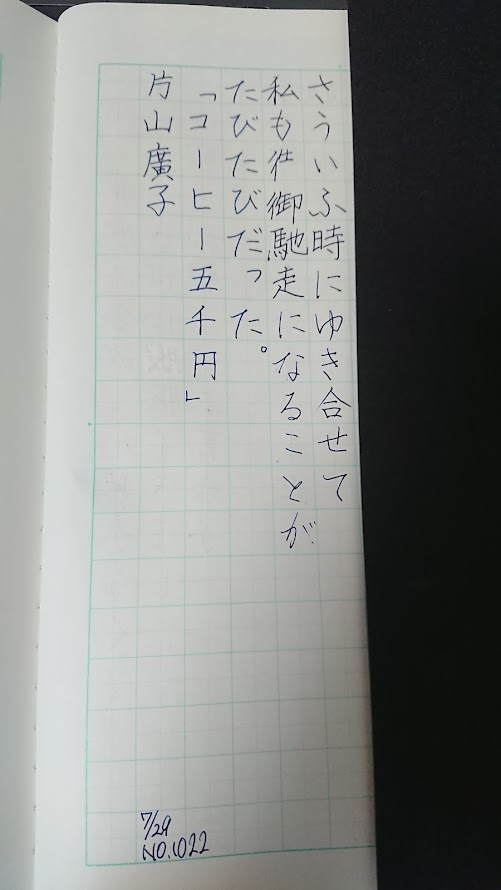 さういふ時にゆき合せて
私も御馳走になることが
たびたびだった。
「コーヒー五千円」
片山廣子
7/29
NO.1022